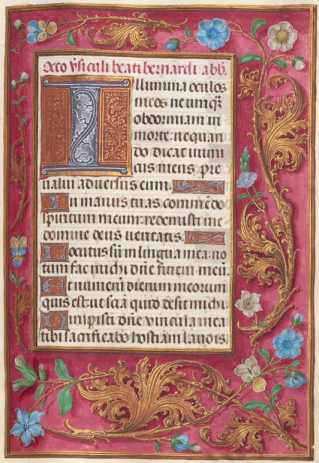 Octo v̓siculi beati bernardi abb̃.
Illumina oculos
meos ne umq̃
obdormiam in
morte: ne quan
do dicat inimi
cus meus: pre
valui adversus eum.
In manus tuas com̃edo
spiritum meum: redemisti me
domine deus veritatis.
Locutus sũ in lingua mea: no
tum fac michi dñe finem meũ.
Et numerũ dierum meorum
quis est: ut sciã quid desit michi.
Dirupisti dñe vincula mea
tibi sacrificabo hostiam laudis.